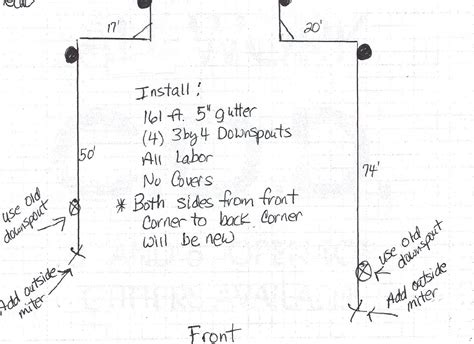 17'
20'
Install:
161 ft. 5" gutter
(4) 3by4 Downspouts
All Labor
No Covers
* Both sides from front
Corner to back Corner
will be new
50'
74'
use old
downspout
Add outside
miter
use old
downspout
Add outside
miter
Front